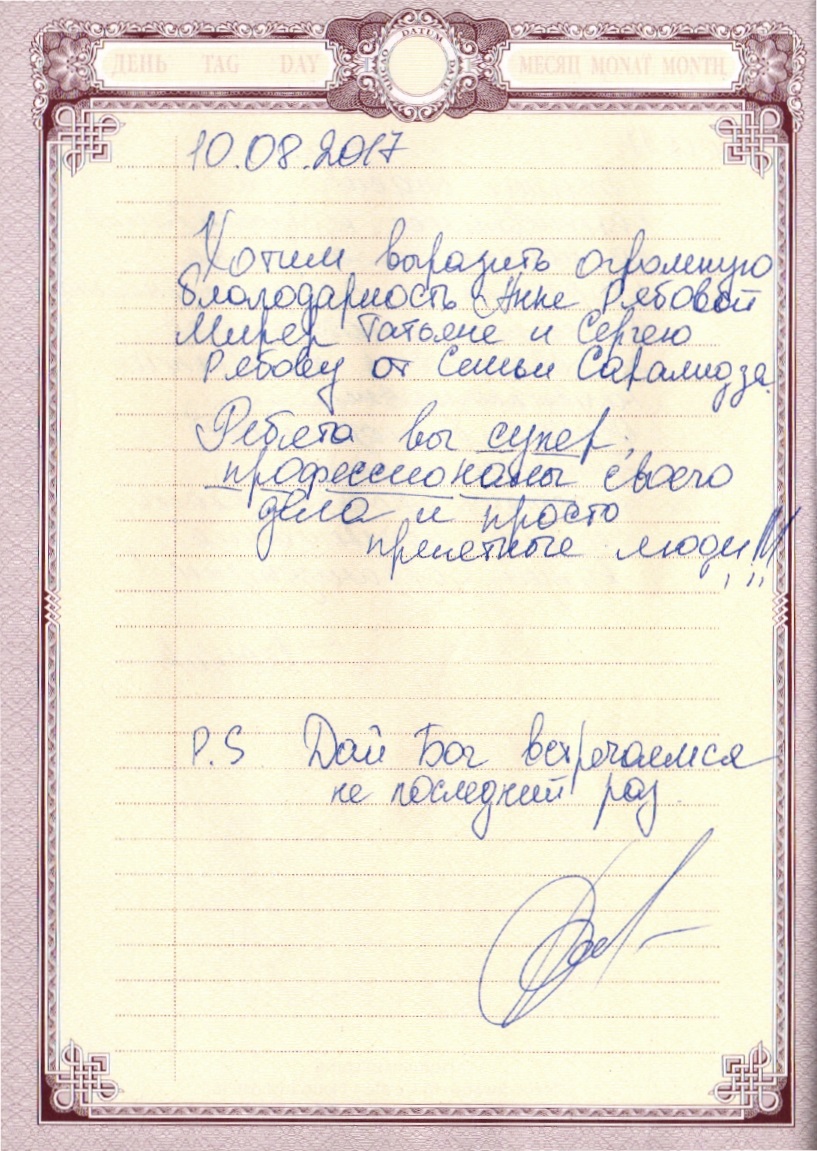 ДЕНЬ TAG DAY DATUM МЕСЯЦ MONAT MONTH
10.08.2017
Хотим выразить огромную
благодарность Анне Рябовой
Мирер Татьяне и Сергею
Рябову от Семьи Сарамидза
Ребята вы супер,
профессионалы своего
дела и просто
приятные люди!!!
P.S Дай Бог встречаемся
не последний раз